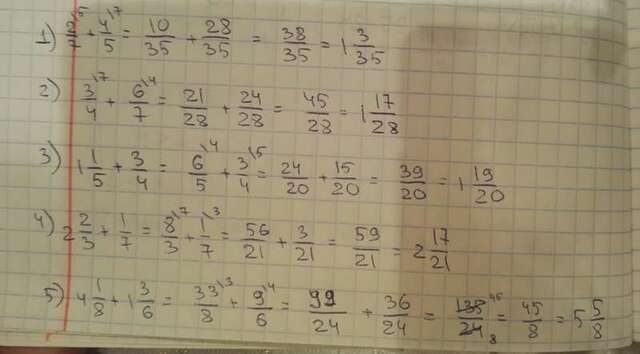 1) 2/7\5 + 4/5\7 = 10/35 + 28/35 = 38/35 = 1 3/35
2) 3/4\7 + 6/7\4 = 21/28 + 24/28 = 45/28 = 1 17/28
3) 1 1/5 + 3/4 = 6/5\4 + 3/4\5 = 24/20 + 15/20 = 39/20 = 1 19/20
4) 2 2/3 + 1/7 = 8/3\7 + 1/7\3 = 56/21 + 3/21 = 59/21 = 2 17/21
5) 4 1/8 + 1 3/6 = 33/8\3 + 9/6\4 = 99/24 + 36/24 = 135/24 45/8 = 45/8 = 5 5/8